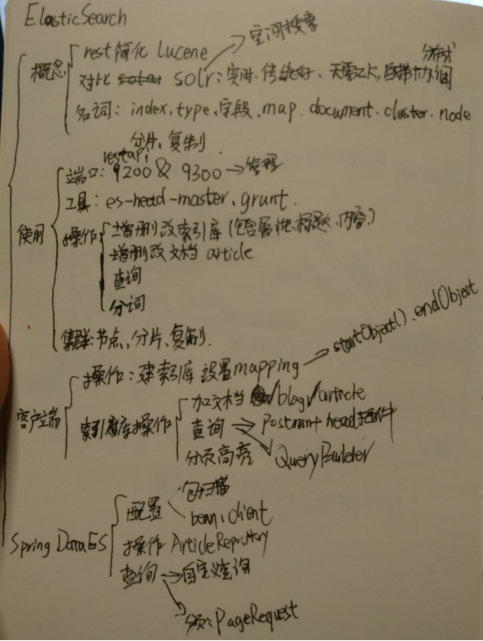 ElasticSearch
概念
rest 简化 Lucene
空间搜索
对比 solr: 实时、传统好、无需工具、自带协调
分布式
名词: index、type、字段、map、document、cluster、node
分片、复制
使用
restapi
端口: 9200 & 9300 → 管理
工具: es-head-master、grunt.
操作
增删改索引库 (包含属性、标题、内容)
增删改文档 article
查询
分词
集群: 节点、分片、复制.
startObject().endObject
客户端
操作: 建索引库 设置mapping
索引库操作
加文档 /blog/article
查询 → Postman+head插件
分页高亮 QueryBuilder
Spring Data ES
配置
包扫描
bean、client
操作 ArticleRepository
查询 → 自定义查询
分页: PageRequest